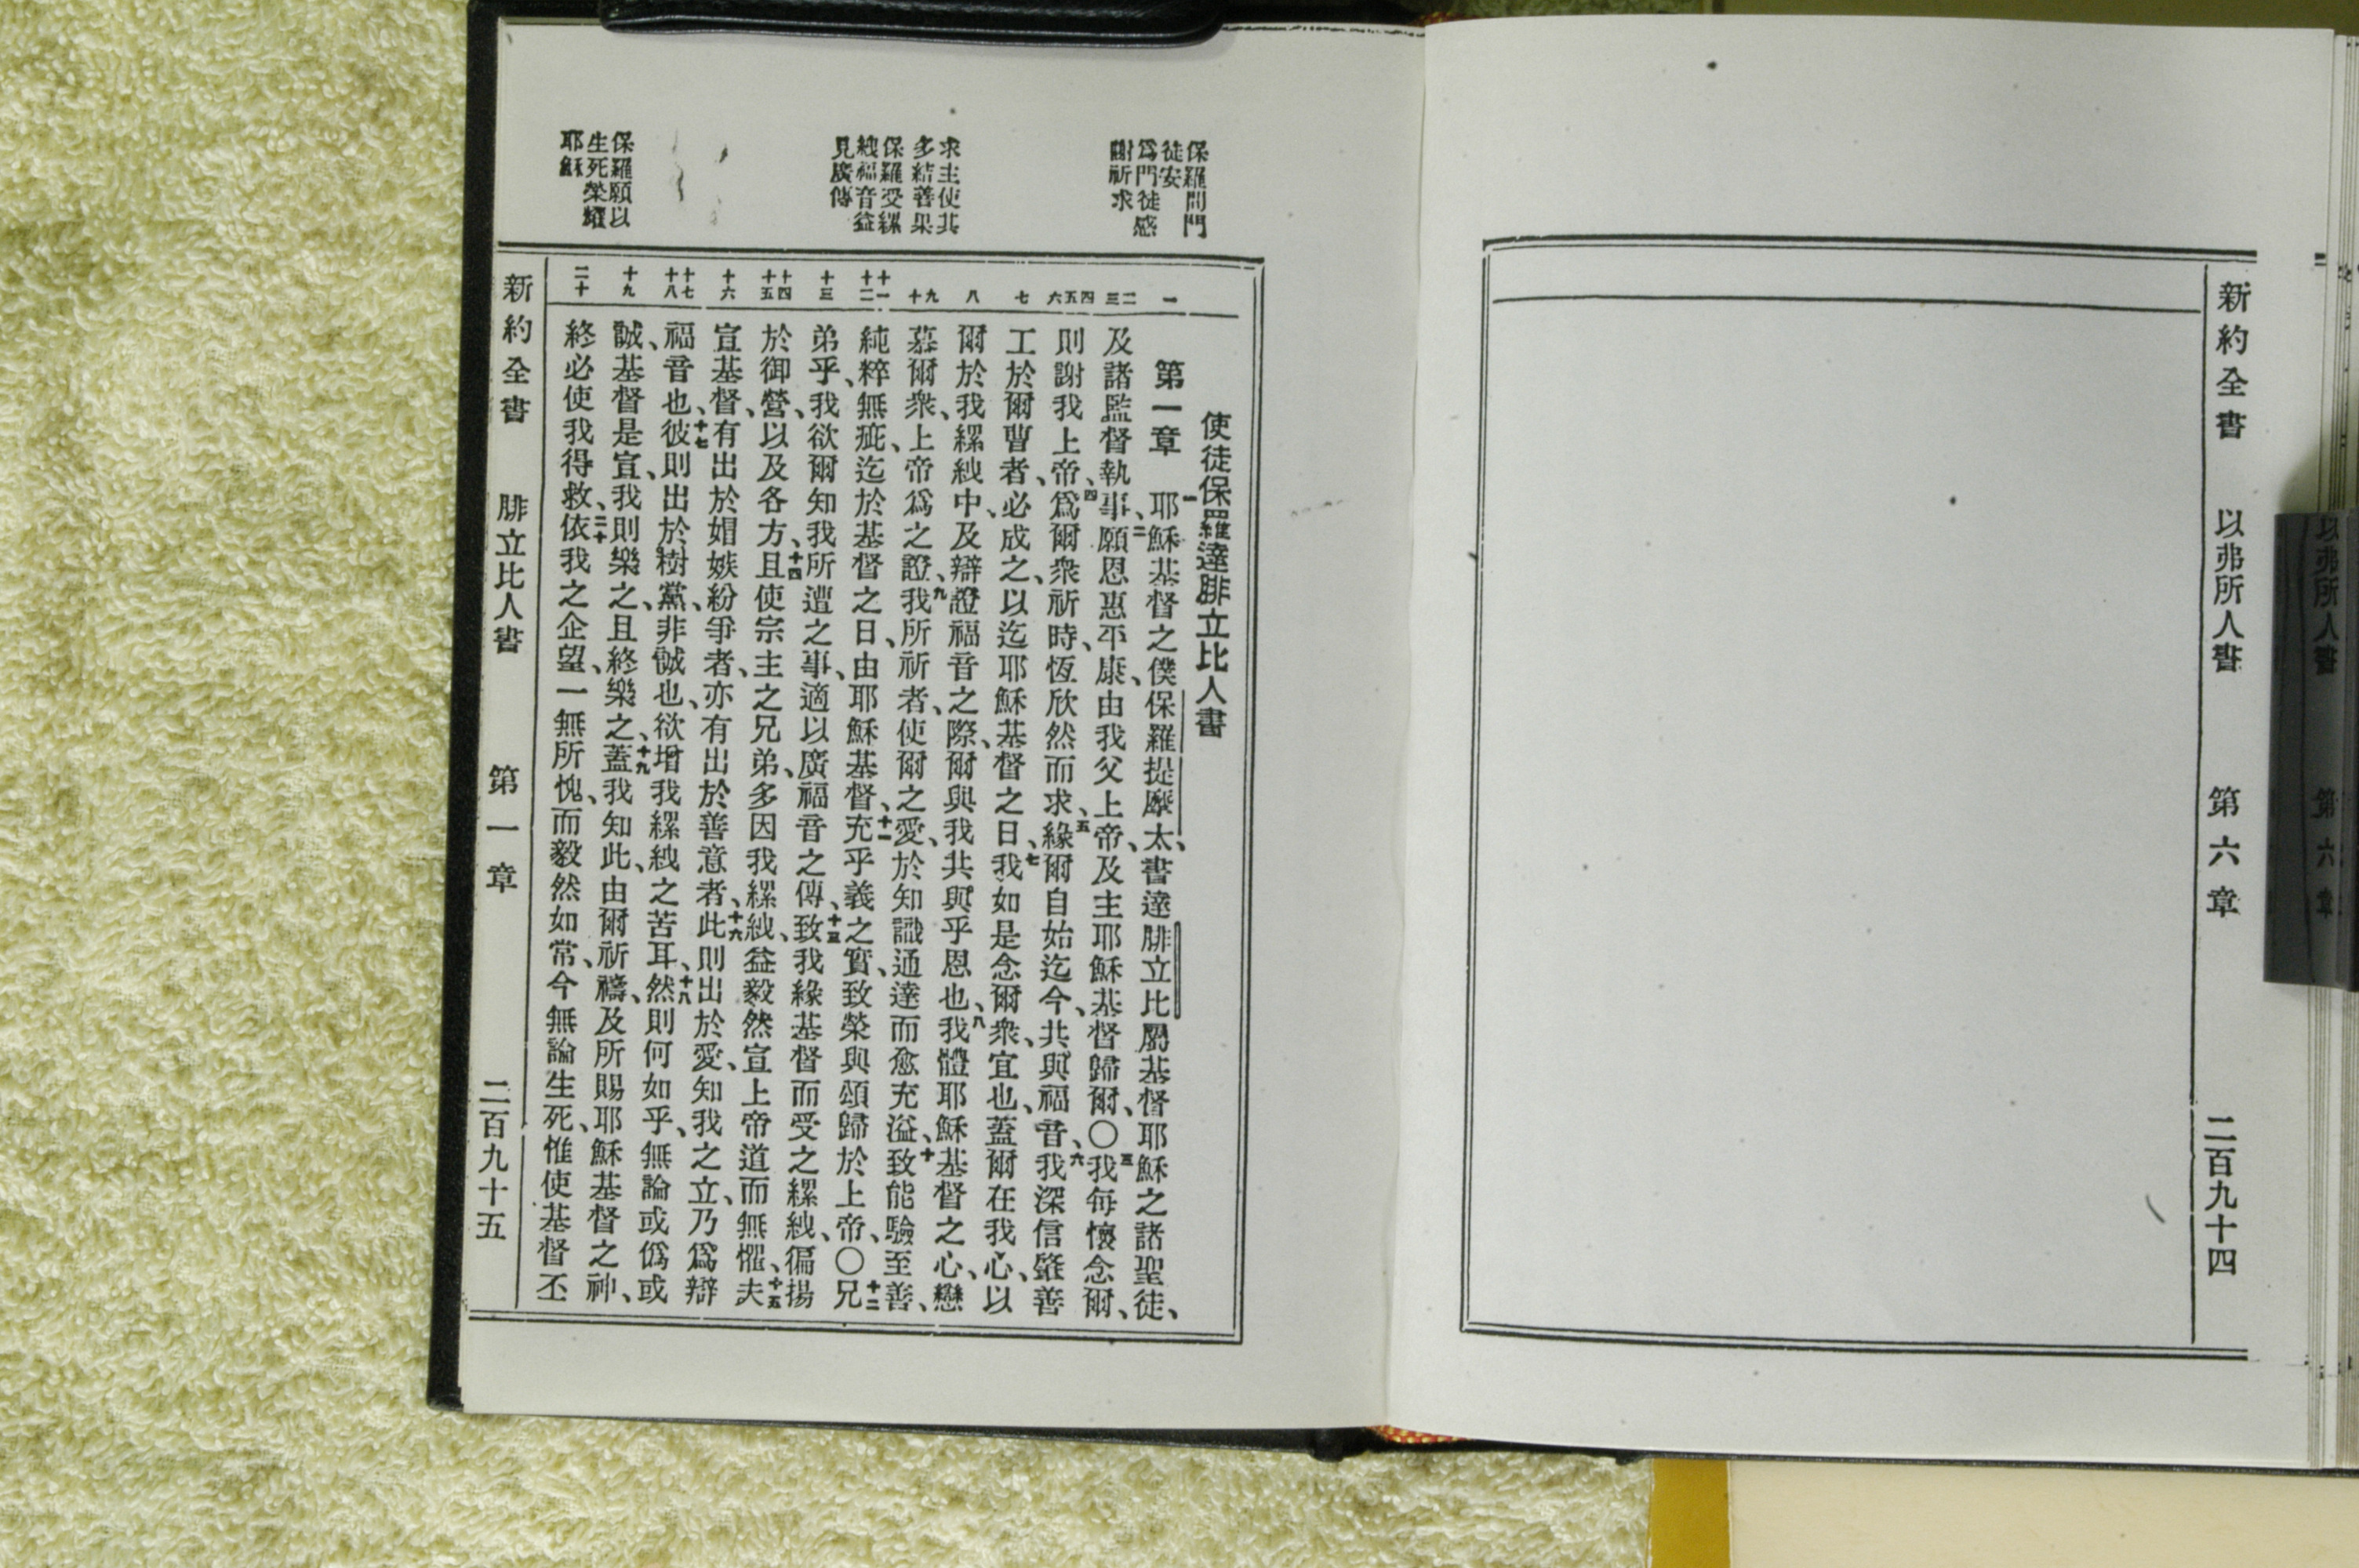 新約全書 以弗所人書 第六章 二百九十四
保羅問門
徒安
爲門徒感
謝祈求
求主使其
多結善果
保羅受縲
絏福音益
見廣傳
保羅願以
生死榮耀
耶穌
一
二 三
四 五 六
七
八
九 十
十一 十二
十三
十四 十五
十六
十七 十八
十九
二十
使徒保羅達腓立比人書
第一章 一耶穌基督之僕保羅提摩太、書達腓立比屬基督耶穌之諸聖徒、
及諸監督執事、二願恩惠平康、由我父上帝、及主耶穌基督歸爾、〇三我每懷念爾、
則謝我上帝、四爲爾衆祈時、恆欣然而求、五緣爾自始迄今、共與福音、六我深信肇善
工於爾曹者、必成之、以迄耶穌基督之日、七我如是念爾衆、宜也、蓋爾在我心、以
爾於我縲絏中、及辯證福音之際、爾與我共與乎恩也、八我體耶穌基督之心、戀
慕爾衆、上帝爲之證、九我所祈者、使爾之愛、於知識通達而愈充溢、十致能驗至善、
純粹無疵、迄於基督之日、由耶穌基督、十一充乎義之實、致榮與頌歸於上帝、〇十二兄
弟乎、我欲爾知我所遭之事、適以廣福音之傳、十三致我緣基督而受之縲絏、徧揚
於御營、以及各方、十四且使宗主之兄弟、多因我縲絏、益毅然宣上帝道而無懼、十五夫
宣基督、有出於娼嫉紛爭者、亦有出於善意者、十六此則出於愛、知我之立、乃爲辯
福音也、十七彼則出於樹黨、非誠也、欲增我縲絏之苦耳、十八然則何如乎、無論或僞或
誠、基督是宣、我則樂之、且終樂之、十九蓋我知此、由爾祈禱、及所賜耶穌基督之神、
終必使我得救、二十依我之企望、一無所愧、而毅然如常、今無論生死、惟使基督丕
新約全書 腓立比人書 第一章 二百九十五
以弗所人書 第六章